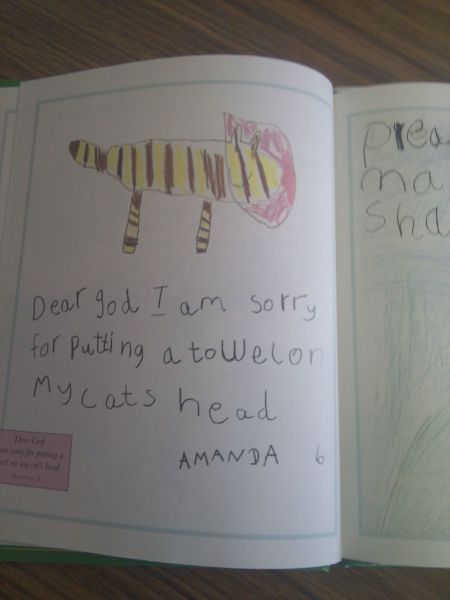 Dear god I am sorry
for putting a towel on
My cats head
AMANDA 6
Dear God
am sorry for putting a
on my cat's head
Amanda, 6
prea
ma
sha